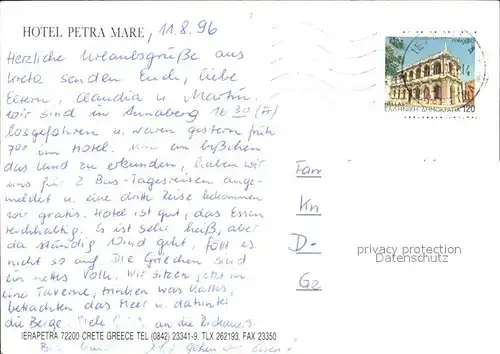 HOTEL PETRA MARE, 11.8.96
Herzliche Urlaubsgrüße aus
Kreta senden Euch, liebe
Eltern, Claudia u Martin.
Wir sind in Annaberg 16 30 (Fr)
losgefahren u. waren gestern früh
7 00 im Hotel. Um ein bißchen
das Land zu erkunden, haben wir
uns für 2 Bus-Tagesreisen ange-
meldet u. eine dritte Reise bekommen
wir gratis. Hotel ist gut, das Essen
reichhaltig. Es ist sehr heiß, aber
da ständig Wind geht, fällt es
nicht so auf. Die Griechen sind
ein nettes Volk. Wir sitzen jetzt in
eine Taverne, trinken was Kaltes,
betrachten das Meer u. dahinter
die Berge. an die
IERAPETRA 72200 CRETE GREECE TEL (0842) 23341-9, TLX 262193, FAX 23350
gehen
ΕΛΛΗΝΙΚΗ ΔΗΜΟΚΡΑΤΙΑ 120
HELLAS
Fam
Kn
D-
Ge
privacy protection
Datenschutz